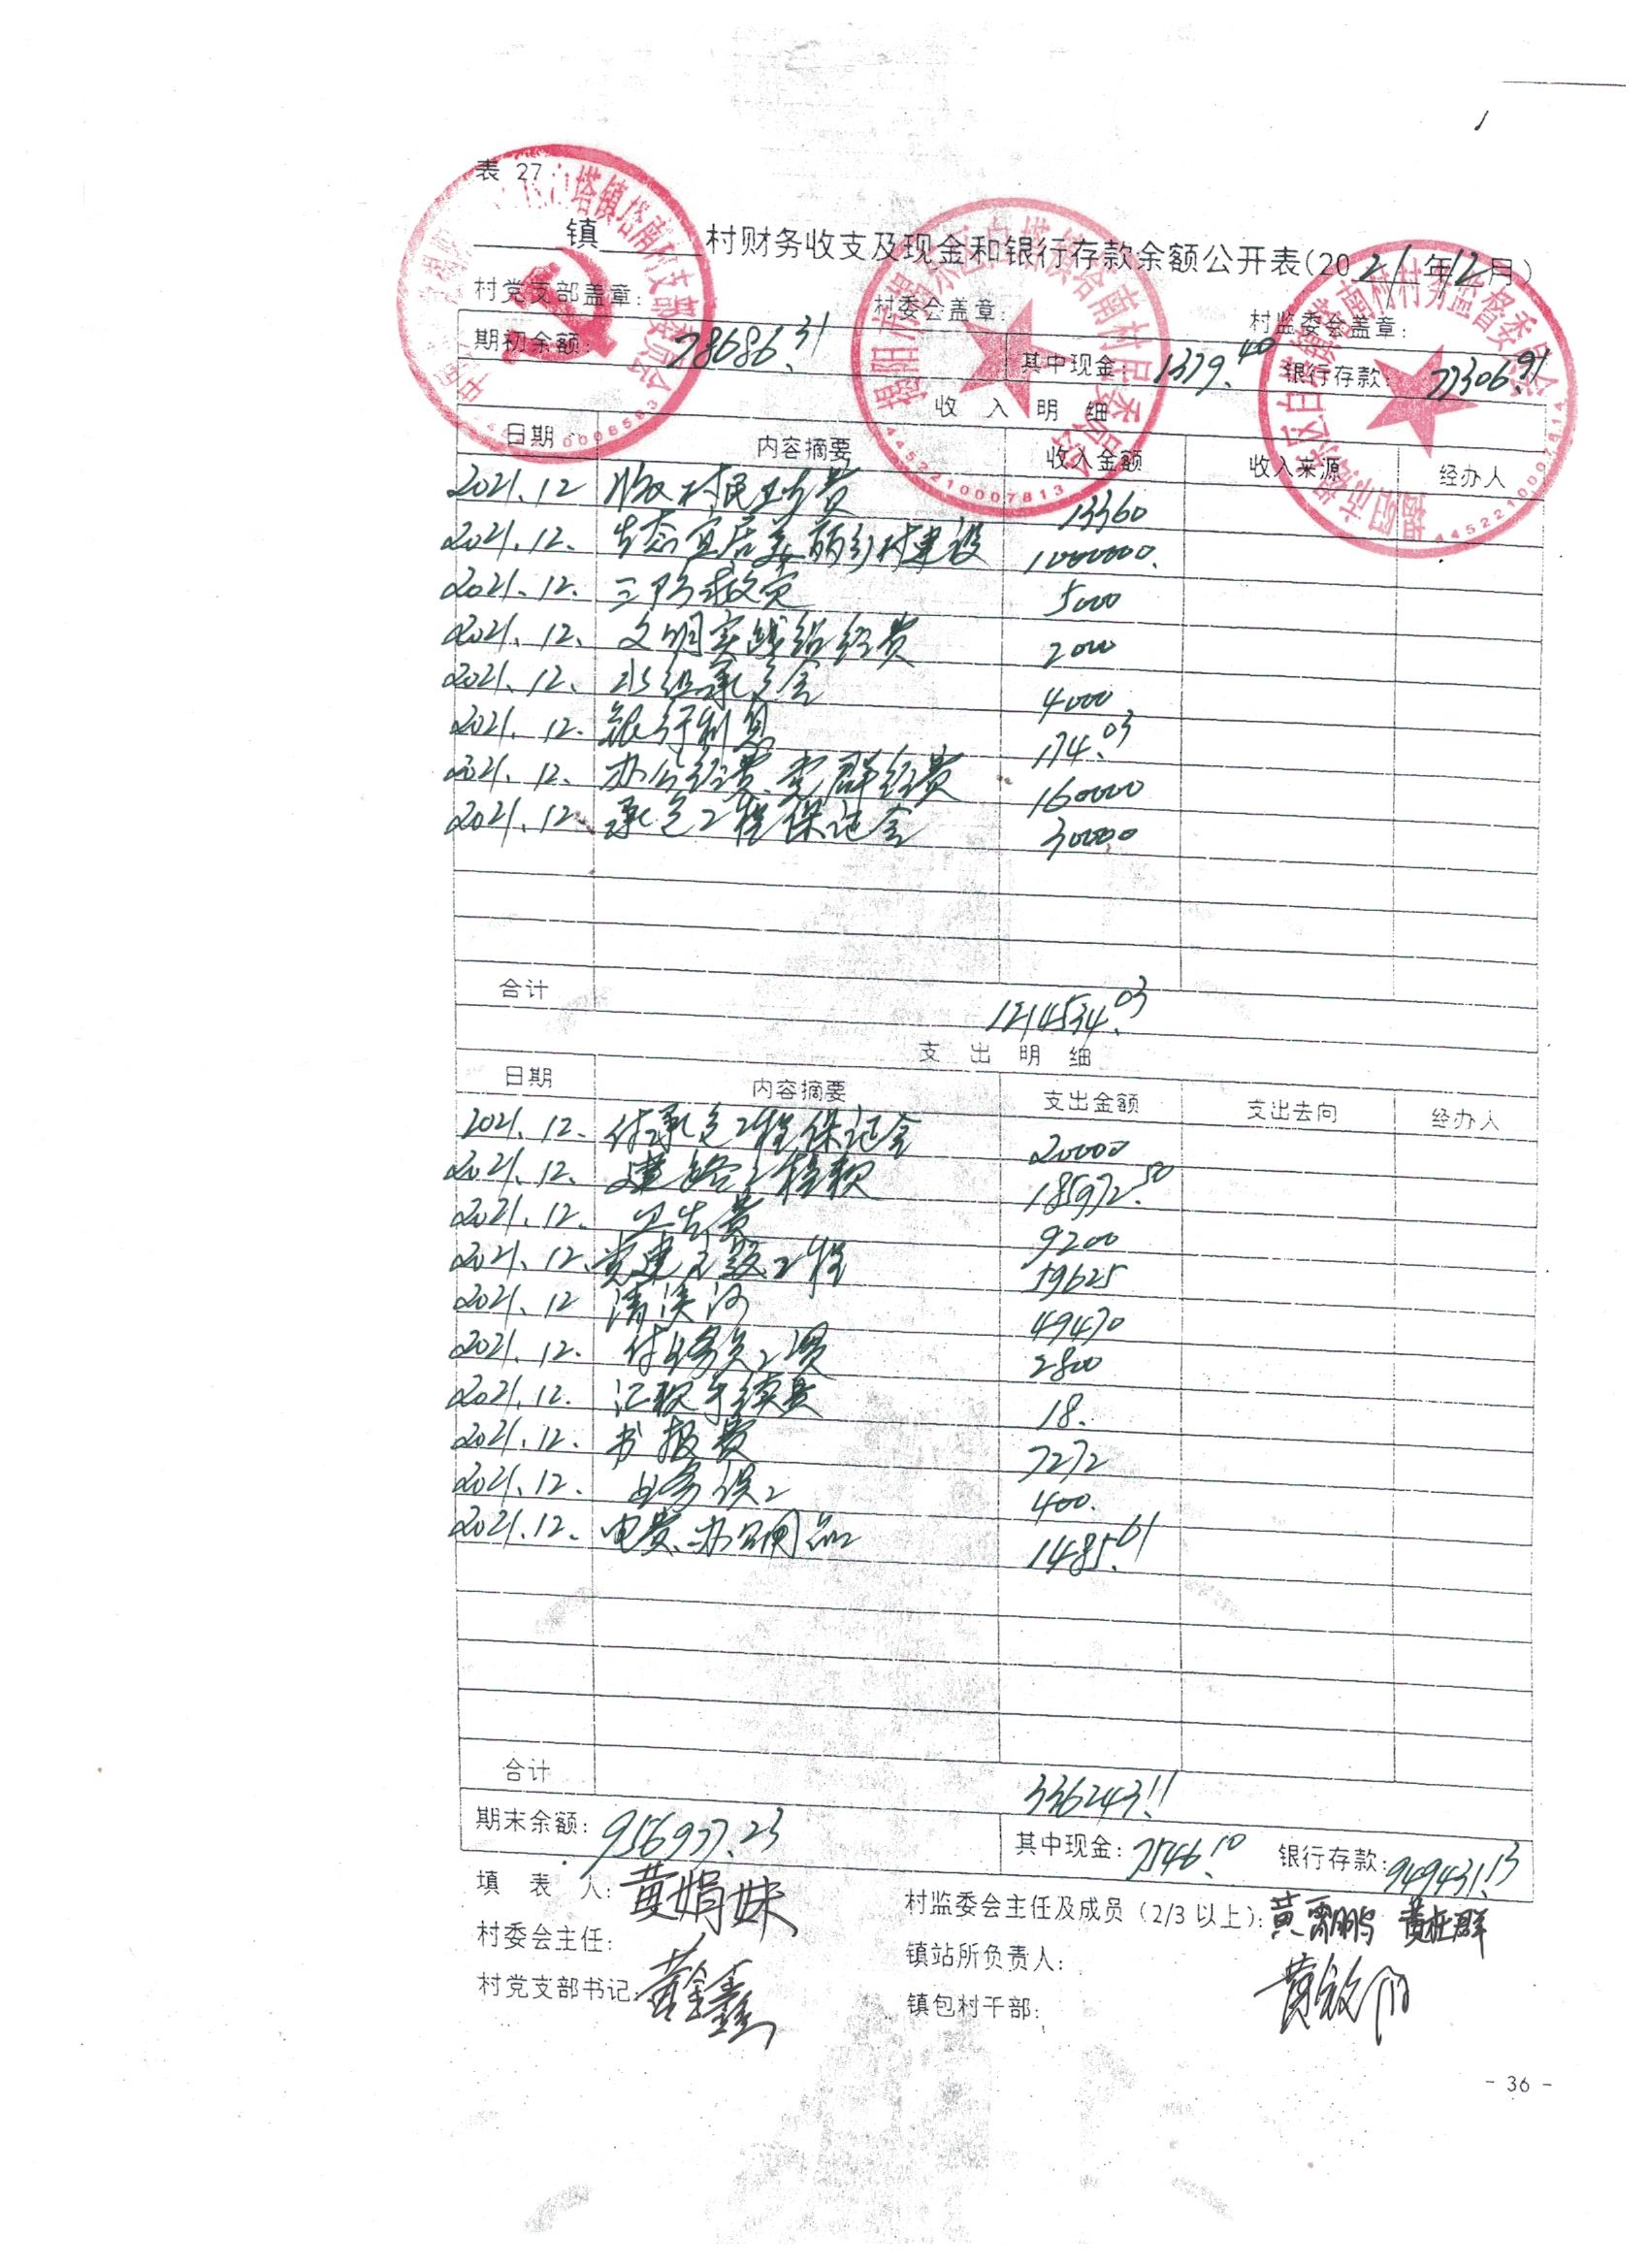 表 27
镇 村财务收支及现金和银行存款余额公开表(2021年12月)
村党支部盖章: 村委会盖章: 村监委会盖章:
期初余额: 78686.31 其中现金: 1379.40 银行存款: 77306.91
收 入 明 细
日期 内容摘要 收入金额 收入来源 经办人
2021.12 收村民卫生费 13360
2021.12. 生态宜居美丽乡村建设 1000000.
2021.12. 三防救灾 5000
2021.12. 文明实践站经费 2000
2021.12. 承包金 4000
2021.12. 银行利息 174.03
2021.12. 办公经费、党群经费 160000
2021.12. 承包工程保证金 30000
合计 1214534.03
支 出 明 细
日期 内容摘要 支出金额 支出去向 经办人
2021.12. 付承包工程保证金 20000
2021.12. 建路工程款 185972.50
2021.12. 卫生费 9200
2021.12. 党建工程 59625
2021.12 清溪河 49470
2021.12. 付 2800
2021.12. 汇款手续费 18.
2021.12. 书报费 7272
2021.12. 误工 400.
2021.12. 电费、办公用品 1485.61
合计 336243.11
期末余额: 956977.23 其中现金: 7546.10 银行存款: 949431.13
填 表 人: 黄娟妹 村监委会主任及成员(2/3 以上): 黄鹏 黄群
村委会主任: 镇站所负责人:
村党支部书记: 黄鑫 镇包村干部:
- 36 -
揭阳市揭东区白塔镇塔南村民委员会
4452210007813